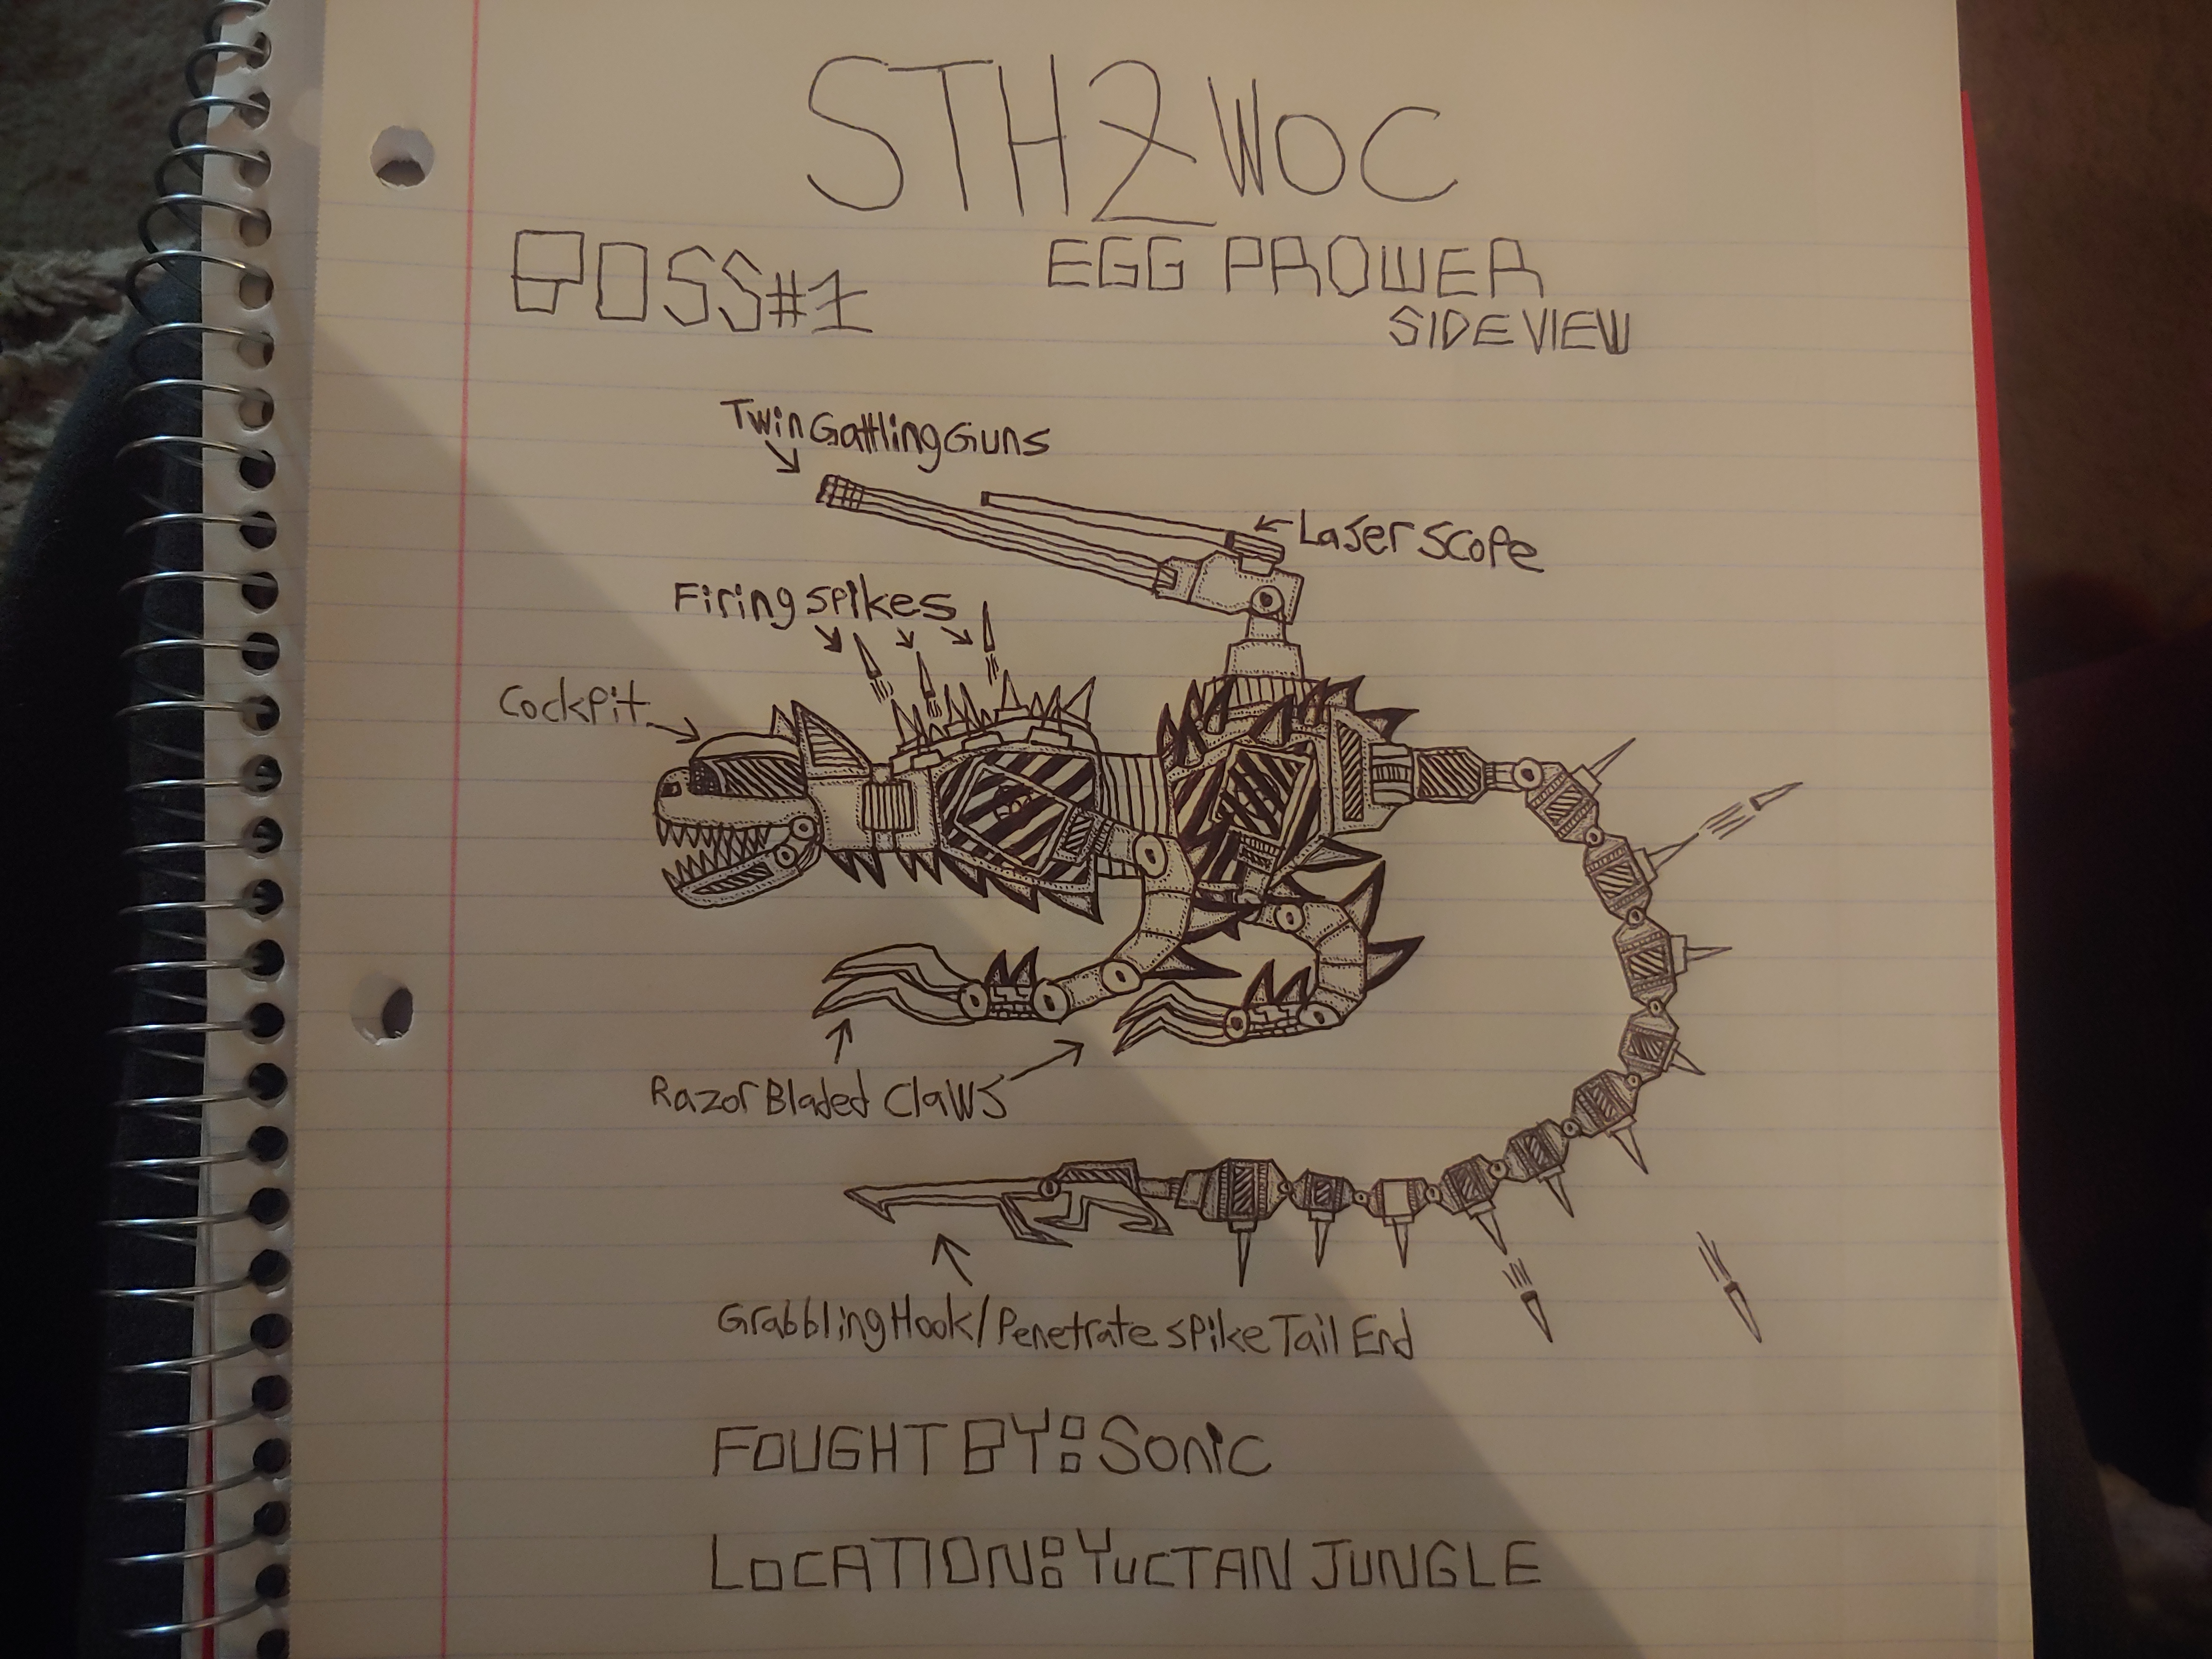 STH2WOC
BOSS#1
EGG PROWER
SIDE VIEW
Twin Gattling Guns
Laser Scope
Firing spikes
Cockpit
Razor Bladed Claws
Grabbling Hook/Penetrate spike Tail End
FOUGHT BY: Sonic
LOCATION: YUCTAN JUNGLE